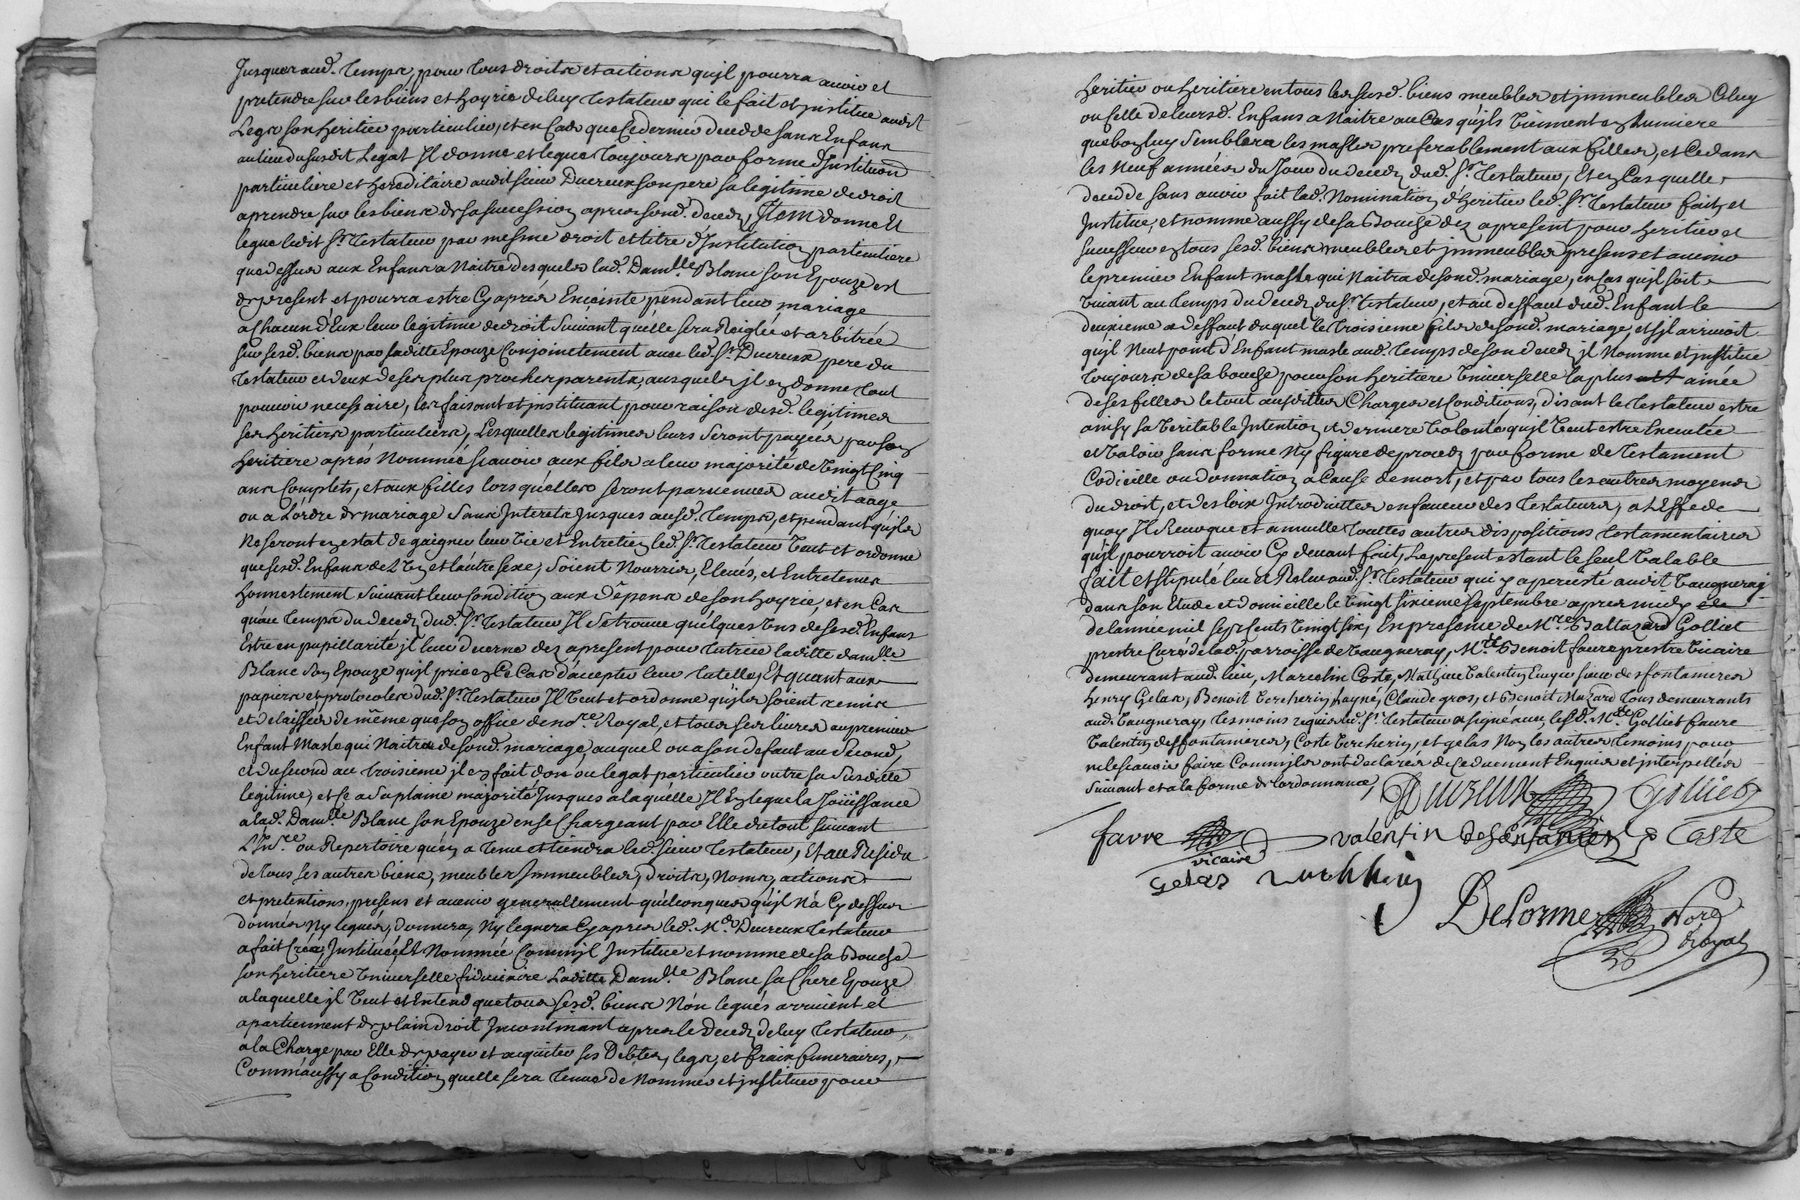 Jusques aud. temps, pour tous droits et actions qu'jl pourra avoir et
pretendre sur les biens et hoyrie de luy testateur qui le fait et jnstitue audit
Legs son heritier particulier, et en Cas que Ce dernier decede sans Enfans
au lieu du susdit Legat Il donne et legue toujours par forme d'Institution
particuliere et hereditaire audit sieur Ducreux son pere sa legitime de droit
a prendre sur les biens de sa succession apres sond. deceds, Item donne et
legue ledit Sr. testateur par mesme droit et titre d'Institution particuliere
que dessus aux Enfans a Naitre desquels lad. Damlle Blanc son Epouze est
de present et pourra estre Cy aprés Enceinte pendant leur mariage
a Chacun d'Eux leur legitime de droit Suivant qu'elle sera Reiglée et arbitrée
sur sesd. biens par laditte Epouze Conjoinctement avec led. Sr. Ducreux pere du
testateur et deux de ses plus proches parents, ausquels jl en donne tout
pouvoir necessaire, les faisant et jnstituant pour raison desd. legitimes
ses heritiers particuliers, Lesquelles legitimes leurs seront payées par son
heritiere aprés Nommée scavoir aux fils a leur majorité de Vingt Cinq
ans Complets, et aux filles lors qu'elles seront parvenues audit aage
ou a L'ordre de mariage Sans Interets Jusques ausd. temps, et pendant qu'jls
Ne seront en estat de gaigner leur Vie et Entretien led. Sr. testateur Veut et ordonne
que sesd. Enfans de L'Un et l'autre sexe, soient Nourris, Elevés, et Entretenus
honnestement Suivant leur Condition aux dépens de son hoyrie, et en Cas
qu'au temps du deceds dud. Sr. testateur Il se trouve quelques Uns de sesd. Enfans
Estre en pupillarité jl leur decerne dez apresent pour tutrice laditte damlle
Blanc son Epouze qu'jl prie en Ce Cas d'accepter leur tutelle, Et quant aux
papiers et protocoles dud. Sr. testateur Il Veut et ordonne qu'jls soient remis
et delaissés de même que son office de nore Royal, et tous ses livres au premier
Enfant Masle qui Naitra de sond. mariage, auquel ou a son defaut au Second,
et du second au troisieme jl en fait don ou legat particulier outre sa Susditte
legitime, et Ce a Sa plaine majorité Jusques a laquelle Il En legue la Joüissance
a lad. Damlle Blanc son Epouze en se Chargeant par Elle de tout suivant
L'Inre. ou Repertoire qu'en a tenu et tiendra led. Sieur testateur, Et au Residu
de tous les autres biens, meubles Immeubles, droits, Noms, actions
et pretentions, presens et avenir generallement quelconques qu'jl N'a Cy dessus
donnés Ny legués, donnera, Ny leguera Cy apres led. Me. Ducreux testateur
a fait Créé, Institué, et Nommée Comme jl Institue et nomme de sa Bouche
son heritiere Universelle fiduciaire Laditte Damlle Blanc sa Chere Epouze
a laquelle jl Veut et Entend que tous sesd. biens Nón legués arrivent et
apartiennent de plain droit Incontinant apres le Deceds de luy testateur,
a la Charge par Elle de payer et acquiter ses Debtes, legs, et fraix funeraires,
Comm'aussy a Condition qu'elle sera tenue de Nommer et jnstituer pour
heritier ou heritiere en tous les susd. biens meubles et jmmeubles Celuy
ou Celle de leursd. Enfans a Naitre au Cas qu'jls Viennent en Lumiere
que bon luy Semblera les masles preferablement aux filles, et Ce dans
les Neuf années du Jour du deceds dud. Sr. testateur, Et en Cas quelle
decede sans avoir fait lad. Nomination d'heritier led. Sr. testateur fait, et
Institue, et nomme aussy de sa Bouche dez apresent pour heritier et
successeur en tous sesd. biens meubles et jmmeubles presens et avenir
le premier Enfant masle qui Naitra de sond. mariage, en Cas qu'jl soit
Vivant au temps du deceds du Sr. testateur, et au deffaut dud. Enfant le
deuxieme a deffaut duquel le troisieme fils de sond. mariage, et s'jl arrivoit
qu'jl N'eut point d'Enfant masle aud. temps de son deceds jl Nomme et jnstitue
toujours de sa bouche pour son heritiere Universelle la plus ainée
de ses filles le tout aux dittes Charges et Conditions, disant le testateur estre
ainsy sa Veritable Intention et derniere Volonté qu'jl Veut estre Executée
et Valoir sans forme Ny figure de proceds par forme de testament
Codicille ou donnation a Cause de mort, et par tous les autres moyens
du droit, et des loix Introduittes en faveur des testateurs, a L'Effet de
quoy Il Revoque et annulle touttes autres dispositions testamentaires
qu'jl pourroit avoir Cy devant fait, le present estant le seul Valable
fait et stipulé leu et Releu aud. Sr. testateur qui y a persisté audit Vaugneray
dans son Etude et domicille le Vingt sixieme septembre apres midy
de l'année mil sept Cents Vingt six, En presence de Mre. Baltazard Golliet
prestre Curé de lad. parroisse de Vaugneray, Mre. Benoit favre prestre Vicaire
demeurant aud. lieu, Marcelin Coste, Mathieu Valentin Ecuyer sieur desfontaineres
henry Gelas, Benoit Vercherin, Claude gros, et Benoit Muzard tous demeurants
aud. Vaugneray, tesmoins requis led. Sr. testateur a signé avec lesd. Mre Golliet favre
Valentin desfontaineres, Coste Vercherin, et gelas Non les autres temoins pour
ne le scavoir faire Comm'jls ont declarés de Ce duement Enquis et jnterpellés
Suivant et a la forme de l'ordonnance,
Ducreux Golliet
favre vicaire valentin desfontaineres Coste
gelas verchherin
Delorme Nore Royal